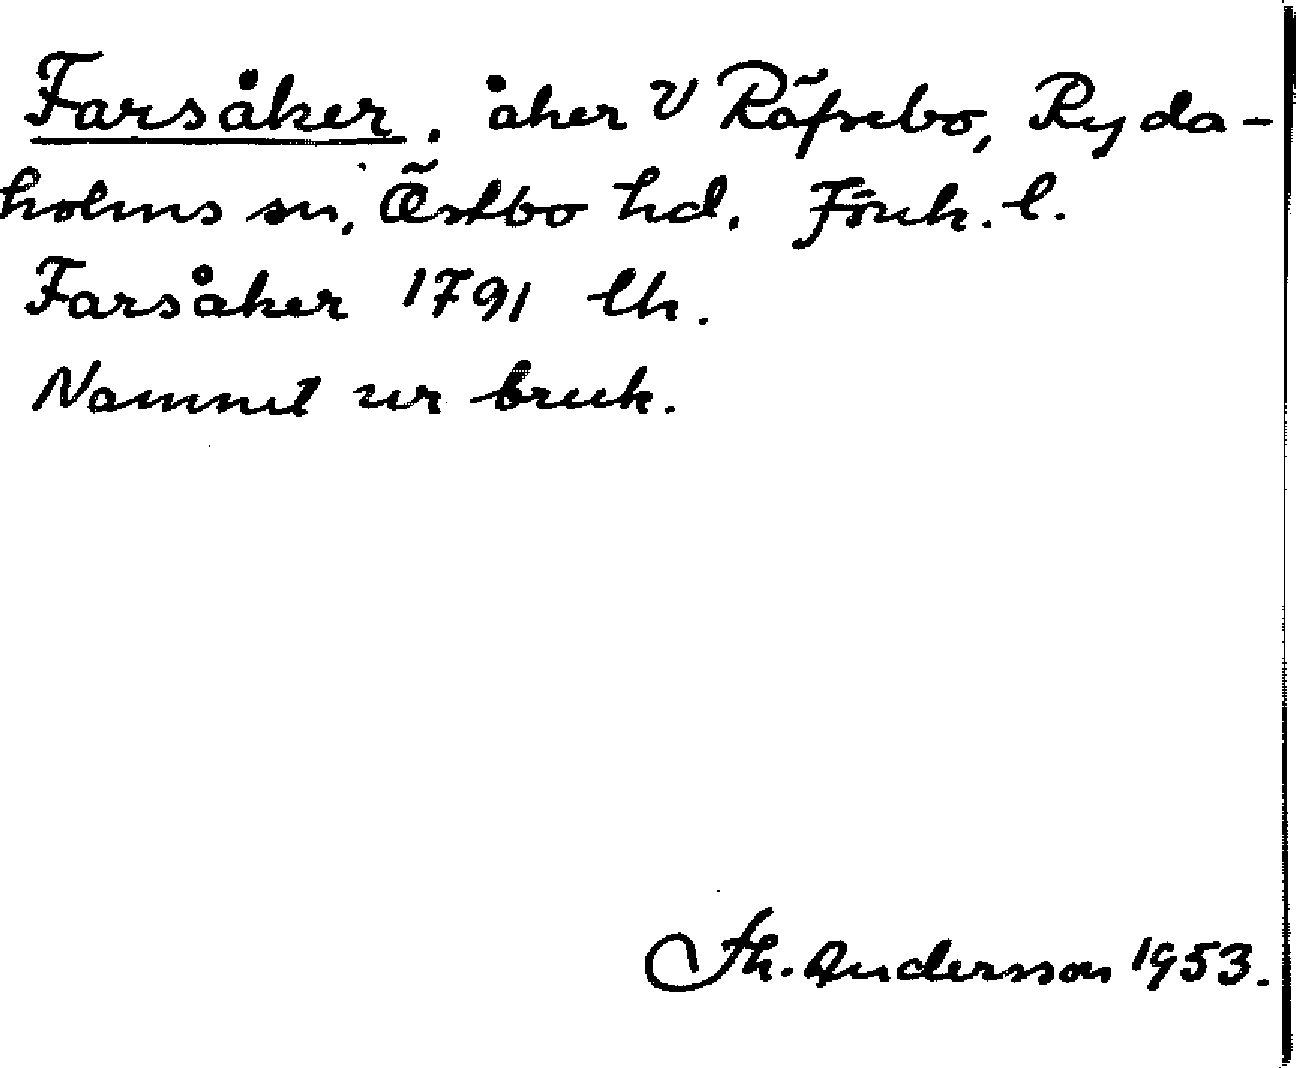 Farsåker. åker V Räfsebo, Ryda-
holms sn, Östbo hd. Jönk. l.
Farsåker 1791 lh.
Namnet ur bruk.
Th. Andersson 1953.